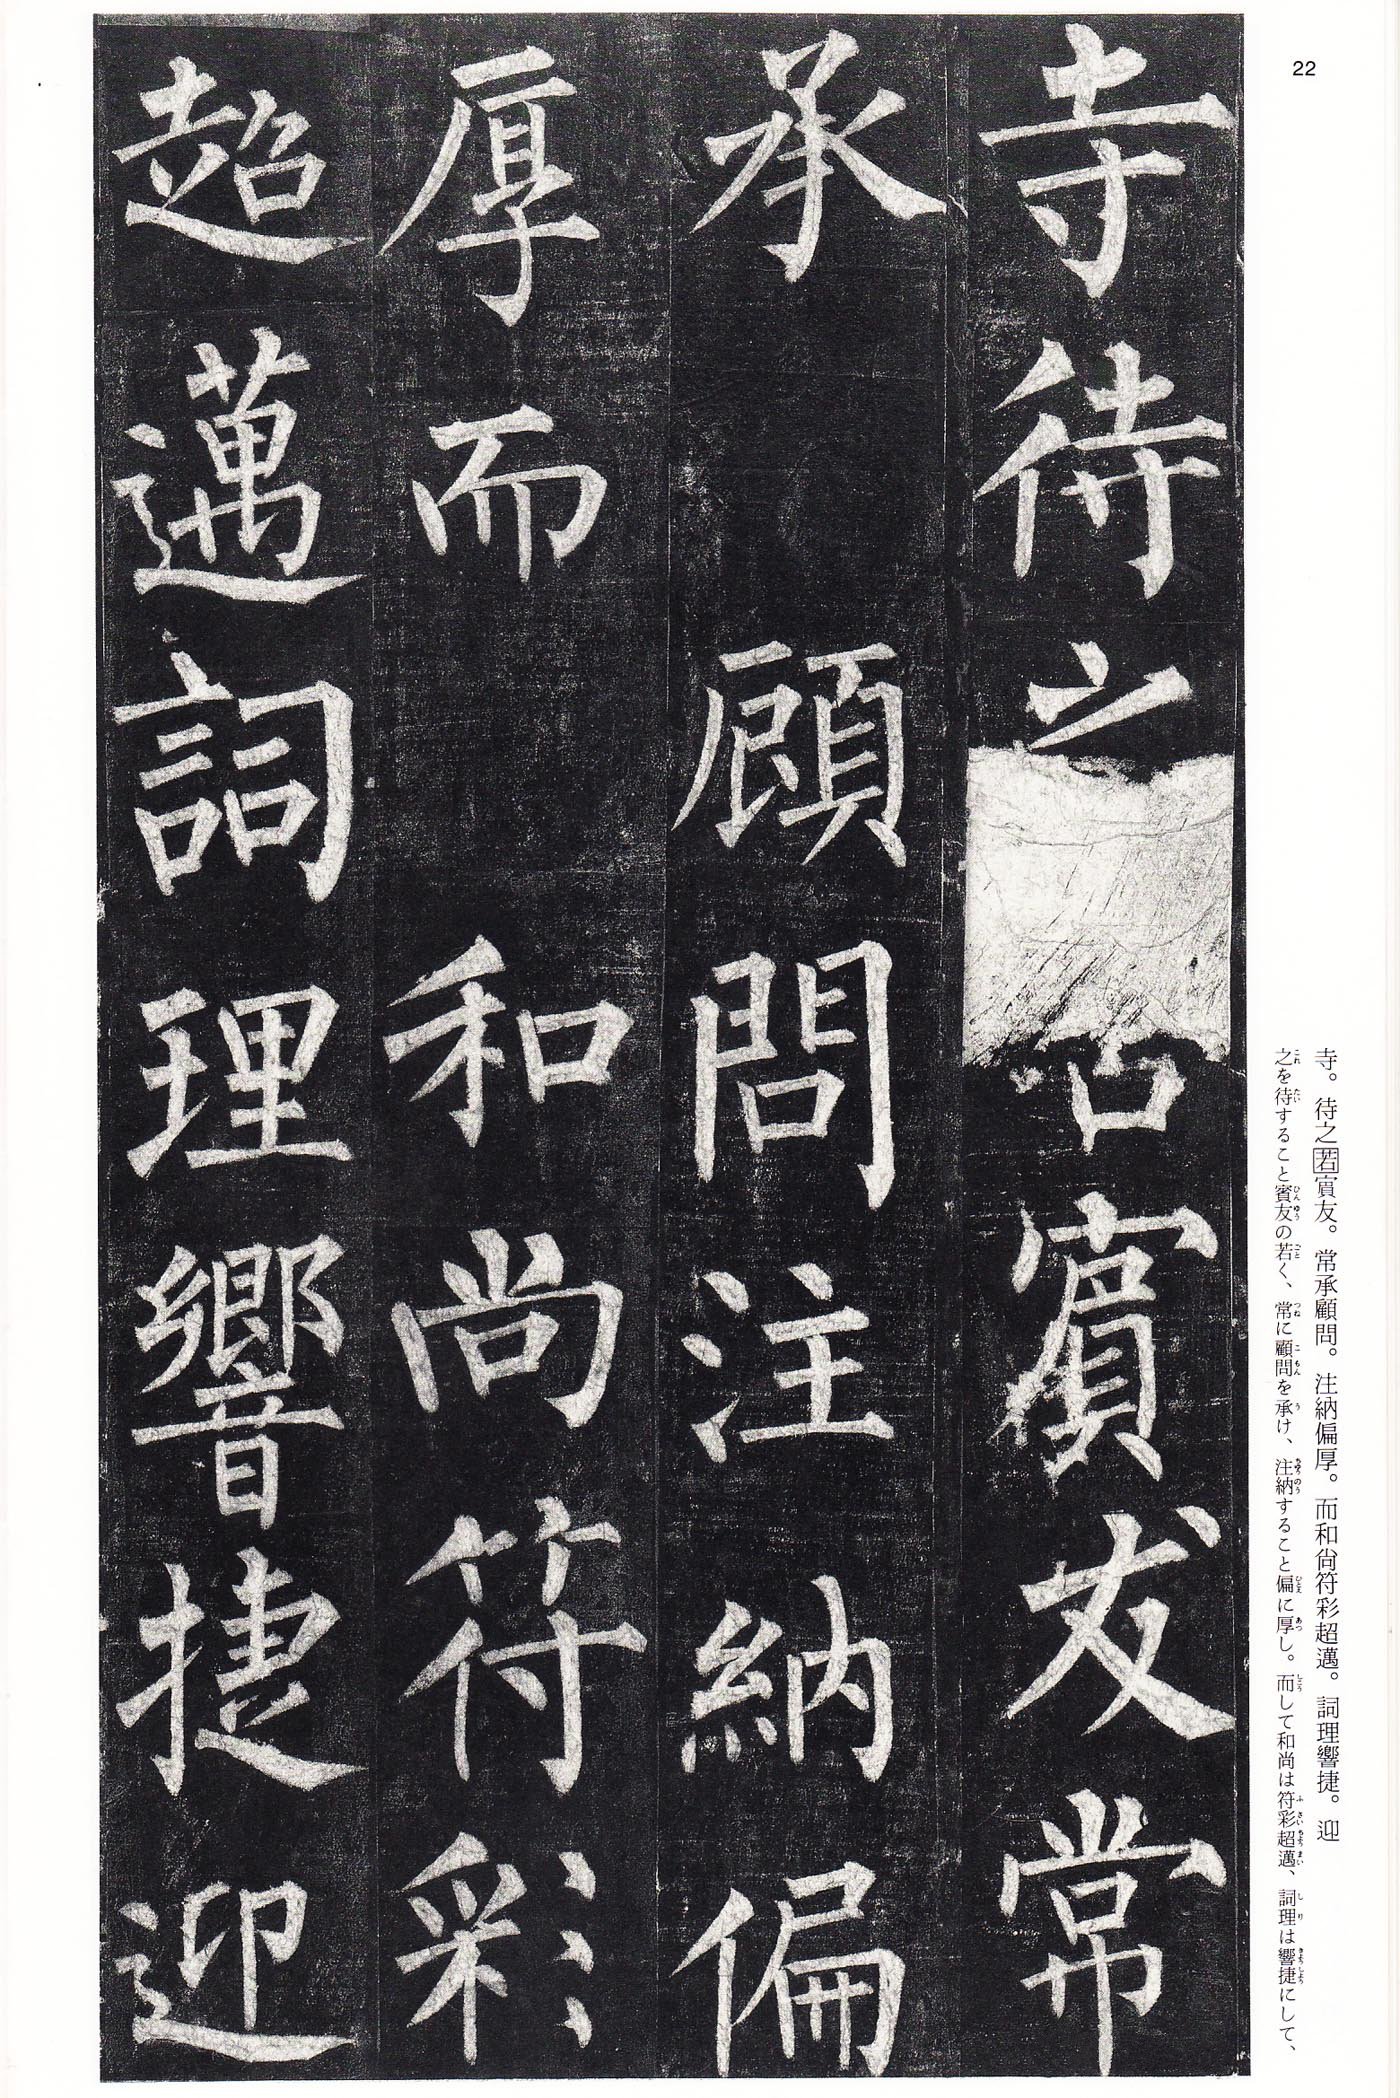 22
寺待之若賓友常
承顧問注納偏
厚而和尚符彩
超邁詞理響捷迎
寺。待之若賓友。常承顧問。注納偏厚。而和尙符彩超邁。詞理響捷。迎
之を待すること賓友の若く、常に顧問を承け、注納すること偏に厚し。而して和尚は符彩超邁、詞理は響捷にして、